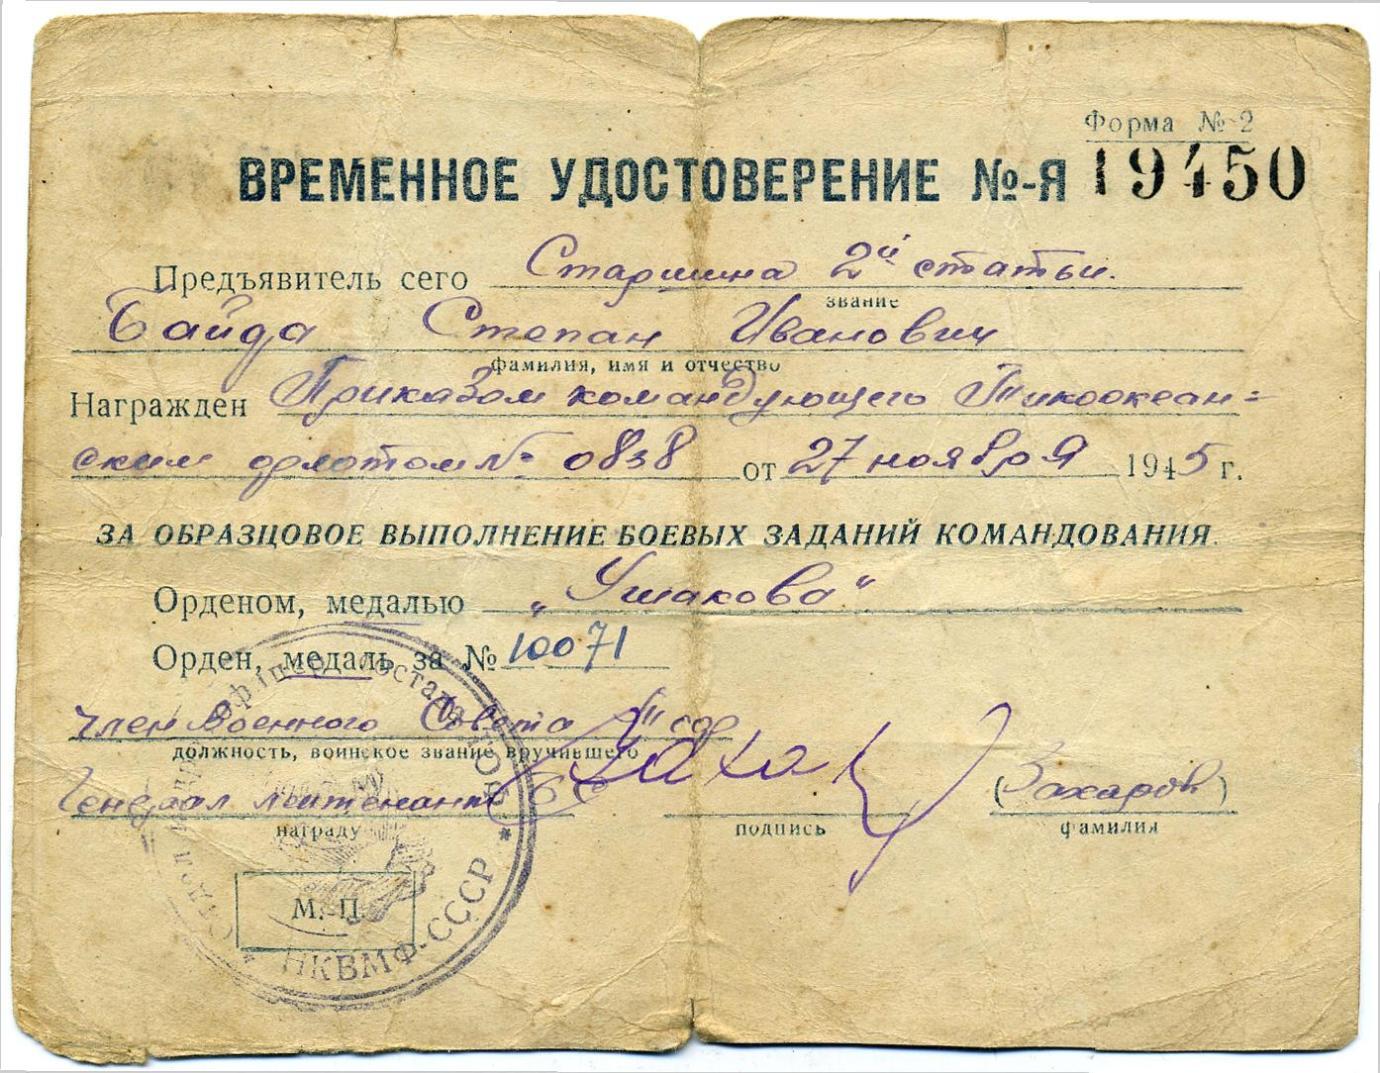 Форма № 2
ВРЕМЕННОЕ УДОСТОВЕРЕНИЕ №-Я 19450
Предъявитель сего Старшина 2й статьи.
звание
Байда Степан Иванович
фамилия, имя и отчество
Награжден Приказом командующего Тихоокеан=
ским флотом № 0838 от 27 ноября 1945 г.
ЗА ОБРАЗЦОВОЕ ВЫПОЛНЕНИЕ БОЕВЫХ ЗАДАНИЙ КОМАНДОВАНИЯ.
Орденом, медалью „Ушакова“
Орден, медаль за № 10071
Член Военного Совета
должность, воинское звание вручившего
Генерал лейтенант (Захаров)
награду подпись фамилия
М. П.
НКВМФ-СССР